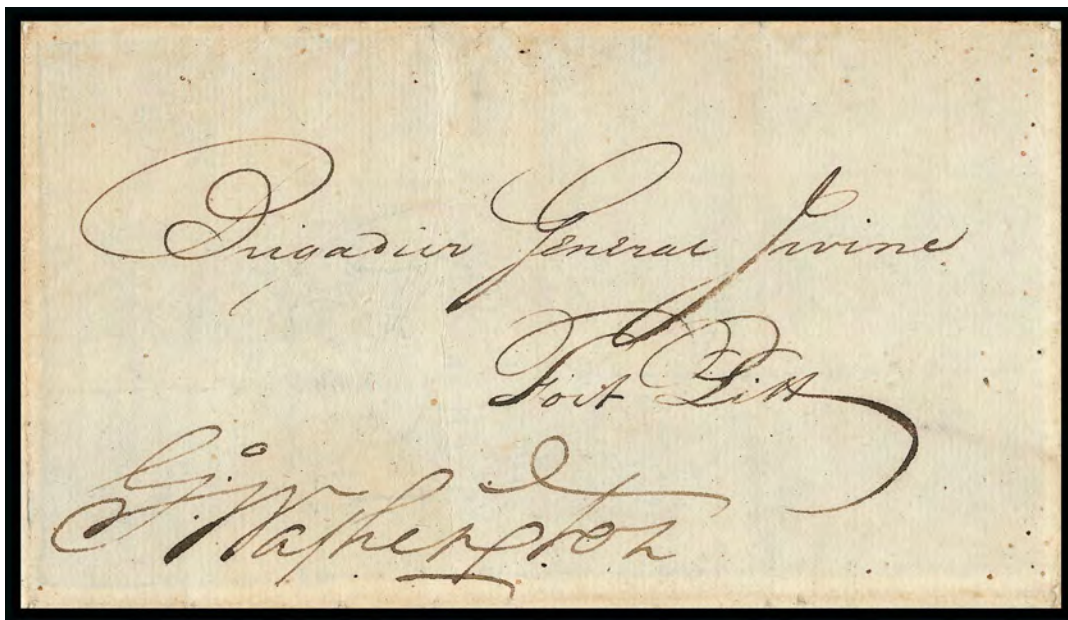 Brigadier General Irvine
Fort Pitt
Go: Washington